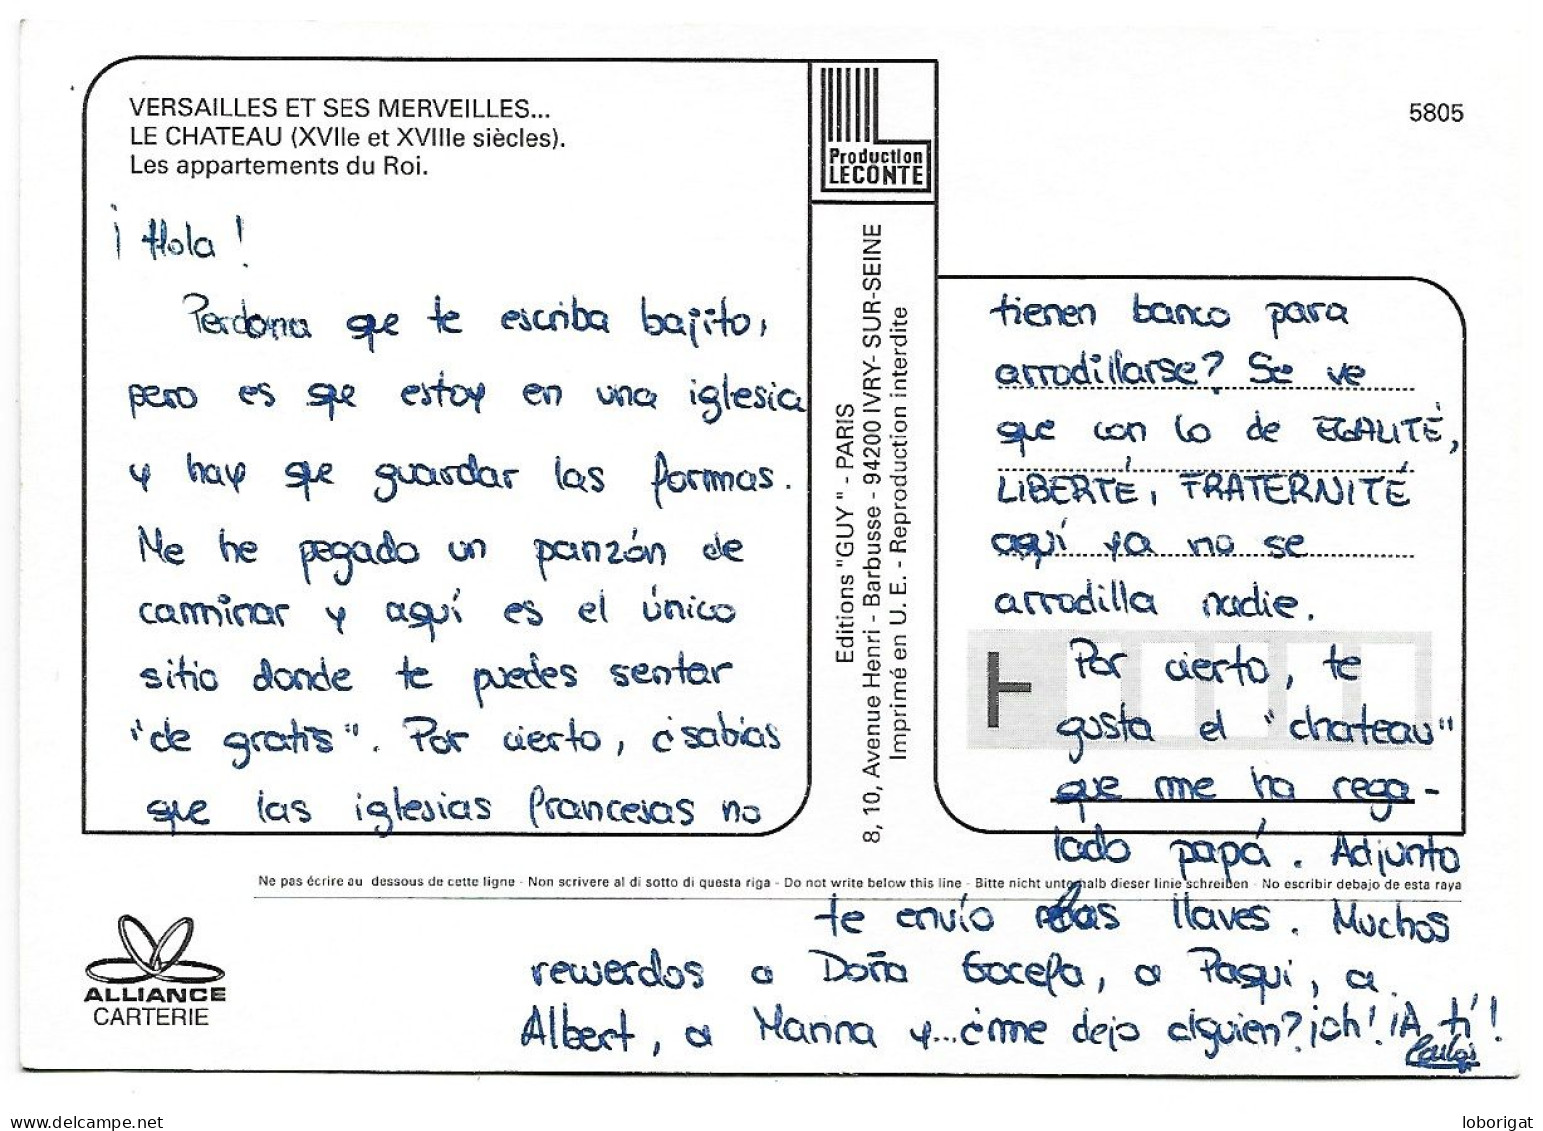 VERSAILLES ET SES MERVEILLES...
LE CHATEAU (XVIIe et XVIIIe siècles).
Les appartements du Roi.
¡Hola!
Perdona que te escriba bajito,
pero es que estoy en una iglesia
y hay que guardar las formas.
Me he pegado un panzón de
caminar y aquí es el único
sitio donde te puedes sentar
"de gratis". Por cierto, ¿sabías
que las iglesias francesas no
Production
LECONTE
Editions "GUY" - PARIS
8, 10, Avenue Henri - Barbusse - 94200 IVRY- SUR-SEINE
Imprimé en U. E. - Reproduction interdite
5805
tienen banco para
arrodillarse? Se ve
que con lo de EGALITÉ,
LIBERTÉ, FRATERNITÉ
aquí ya no se
arrodilla nadie.
Por cierto, te
gusta el "chateau"
que me ha rega-
lado papá. Adjunto
Ne pas écrire au dessous de cette ligne - Non scrivere al di sotto di questa riga - Do not write below this line - Bitte nicht unterhalb dieser linie schreiben - No escribir debajo de esta raya
te envío las llaves. Muchos
recuerdos a Doña a Paqui, a
Albert, a Marina y...¿me dejo alguien? ¡oh! ¡A tí!
Carlos
ALLIANCE
CARTERIE
delcampe.net
loborigat